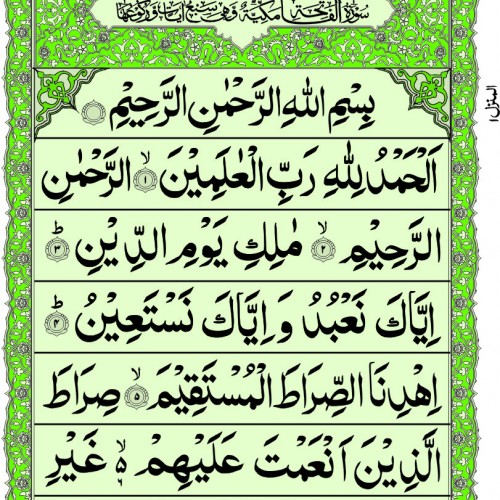 سورة الفاتحة مكية وهي سبع ايات
المنزل ١
بِسْمِ اللهِ الرَّحْمٰنِ الرَّحِيْمِ
اَلْحَمْدُ لِلّٰهِ رَبِّ الْعٰلَمِيْنَ ۙ﴿۱﴾ الرَّحْمٰنِ
الرَّحِيْمِ ۙ﴿۲﴾ مٰلِكِ يَوْمِ الدِّيْنِ ؕ﴿۳﴾
اِيَّاكَ نَعْبُدُ وَ اِيَّاكَ نَسْتَعِيْنُ ؕ﴿۴﴾
اِهْدِنَا الصِّرَاطَ الْمُسْتَقِيْمَ ۙ﴿۵﴾ صِرَاطَ
الَّذِيْنَ اَنْعَمْتَ عَلَيْهِمْ ۙ۬۶ غَيْرِ